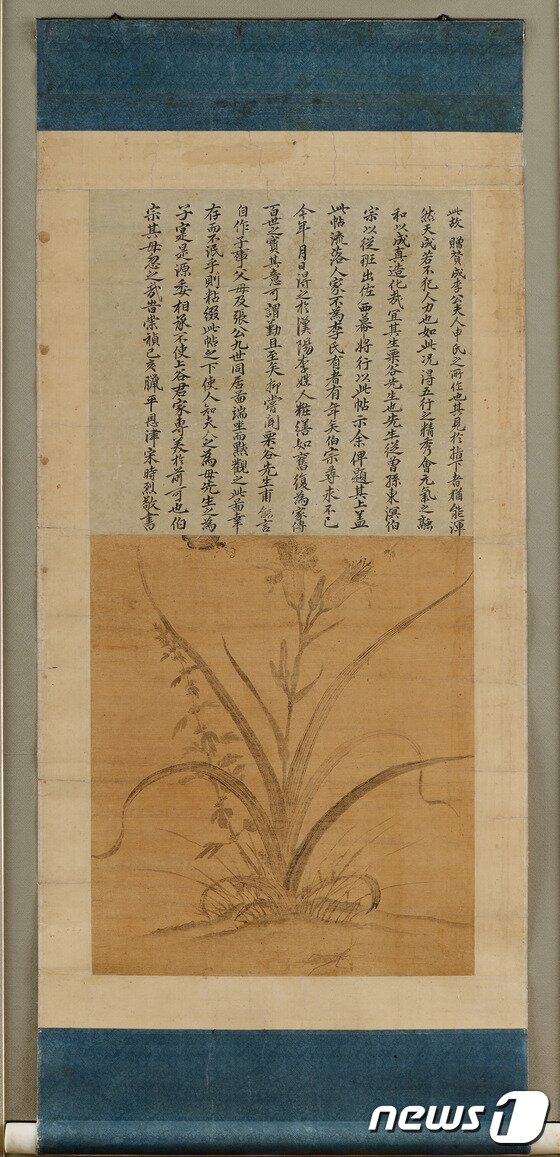 此故 贈贊成李公夫人申氏之所作也其見於指下者猶能渾
然天成若不犯人力也如此況得五行之精秀會元氣之融
和以成真造化哉宜其生栗谷先生也先生從曾孫東溟伯
宗以從班出佐西幕將行以此帖示余俾題其上蓋
此帖流落人家不為李氏有者有年矣伯宗尋求不已
今年月日得之於漢陽李媒人粧繕如舊復為家傳
百世之寶其意可謂勤且至矣抑嘗聞栗谷先生甫能言
自作子事父母及張公九世同居畵端坐而黙觀之此畵幸
存而不泯乎則粘綴此帖之下使人知夫人之為母先生之為
子寔是源委相承不使上谷君家專美於前可也伯
宗其毋忽之哉旹崇禎己亥臘平恩津宋時烈敬書
news1